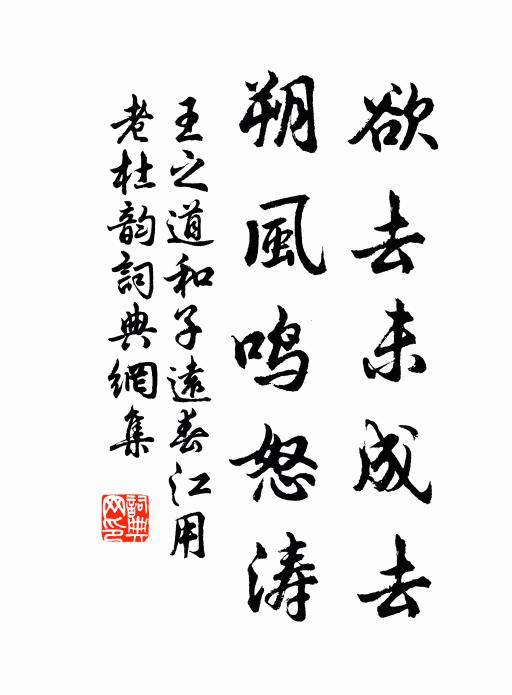 欲去未成去
朔風鸣怒涛
王之道和子遠春江用
老杜韵詞典網集
詞典网印